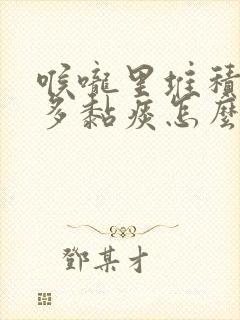 喉嚨里堆積
多黏痰怎麼
鄧某才